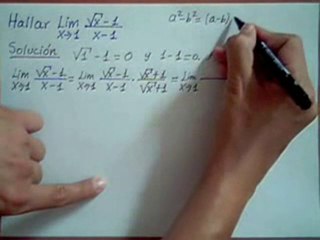 Hallar Lim x→1 √x-1 / x-1
a²-b²=(a-b)
Solución √1-1=0 y 1-1=0.
Lim x→1 √x-1 / x-1 = Lim x→1 √x-1 / x-1 · √x+1 / √x+1 = Lim x→1